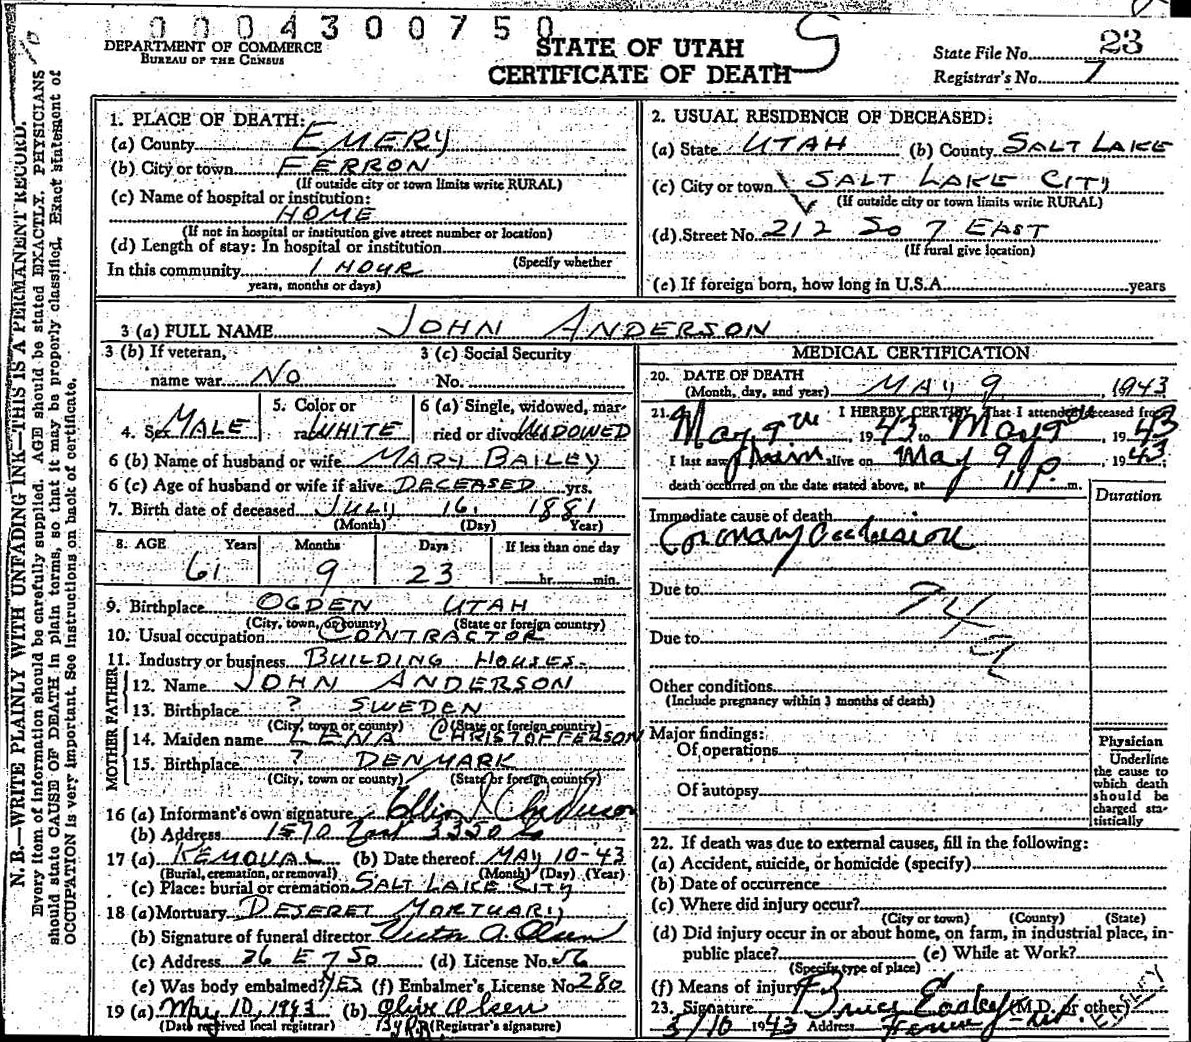 0004300750
DEPARTMENT OF COMMERCE
BUREAU OF THE CENSUS
STATE OF UTAH
CERTIFICATE OF DEATH
State File No. 23
Registrar's No. 7
N. B.—WRITE PLAINLY WITH UNFADING INK—THIS IS A PERMANENT RECORD.
Every item of information should be carefully supplied. AGE should be stated EXACTLY. PHYSICIANS
should state CAUSE OF DEATH in plain terms, so that it may be properly classified. Exact statement of
OCCUPATION is very important. See instructions on back of certificate.
1. PLACE OF DEATH:
(a) County EMERY
(b) City or town FERRON
(If outside city or town limits write RURAL)
(c) Name of hospital or institution:
HOME
(If not in hospital or institution give street number or location)
(d) Length of stay: In hospital or institution
(Specify whether
In this community 1 HOUR
years, months or days)
2. USUAL RESIDENCE OF DECEASED:
(a) State UTAH (b) County SALT LAKE
(c) City or town SALT LAKE CITY
(If outside city or town limits write RURAL)
(d) Street No. 212 So 7 EAST
(If rural give location)
(e) If foreign born, how long in U.S.A. years
3 (a) FULL NAME JOHN ANDERSON
3 (b) If veteran,
name war NO
3 (c) Social Security
No.
4. Sex MALE
5. Color or
race WHITE
6 (a) Single, widowed, mar-
ried or divorced WIDOWED
6 (b) Name of husband or wife MARY BAILEY
6 (c) Age of husband or wife if alive DECEASED yrs.
7. Birth date of deceased JULY 16, 1881
(Month) (Day) Year)
8. AGE Years Months Days If less than one day
61 9 23 hr. min.
9. Birthplace OGDEN UTAH
(City, town, or county) (State or foreign country)
10. Usual occupation CONTRACTOR
11. Industry or business BUILDING HOUSES
FATHER
12. Name JOHN ANDERSON
13. Birthplace ? SWEDEN
(City, town or county) (State or foreign country)
MOTHER
14. Maiden name LENA CHRISTAFFERSON
15. Birthplace ? DENMARK
(City, town or county) (State or foreign country)
16 (a) Informant's own signature
(b) Address 1570 East 3350 So
17 (a) REMOVAL (b) Date thereof MAY 10-43
(Burial, cremation, or removal) (Month) (Day) (Year)
(c) Place: burial or cremation SALT LAKE CITY
18 (a) Mortuary DESERET MORTUARY
(b) Signature of funeral director Victor A. Olsen
(c) Address 36 E 7 SO (d) License No. 56
(e) Was body embalmed? YES (f) Embalmer's License No 280
19 (a) May 10, 1943 (b) Olive Olsen
(Date received local registrar) (Registrar's signature)
MEDICAL CERTIFICATION
20. DATE OF DEATH
(Month, day, and year) MAY 9, 1943
21. I HEREBY CERTIFY, That I attended deceased from
May 9th, 1943 to May 9th, 1943
I last saw him alive on May 9, 1943
death occurred on the date stated above, at 11 p. m.
Duration
Immediate cause of death
Coronary occlusion
Due to
94
Due to
Other conditions
(Include pregnancy within 3 months of death)
Major findings:
Of operations
Of autopsy
Physician
Underline
the cause to
which death
should be
charged sta-
tistically
22. If death was due to external causes, fill in the following:
(a) Accident, suicide, or homicide (specify)
(b) Date of occurrence
(c) Where did injury occur?
(City or town) (County) (State)
(d) Did injury occur in or about home, on farm, in industrial place, in-
public place? (e) While at Work?
(Specify type of place)
(f) Means of injury
23. Signature Bruce (M.D. or other)
5/10 1943 Address Ferron